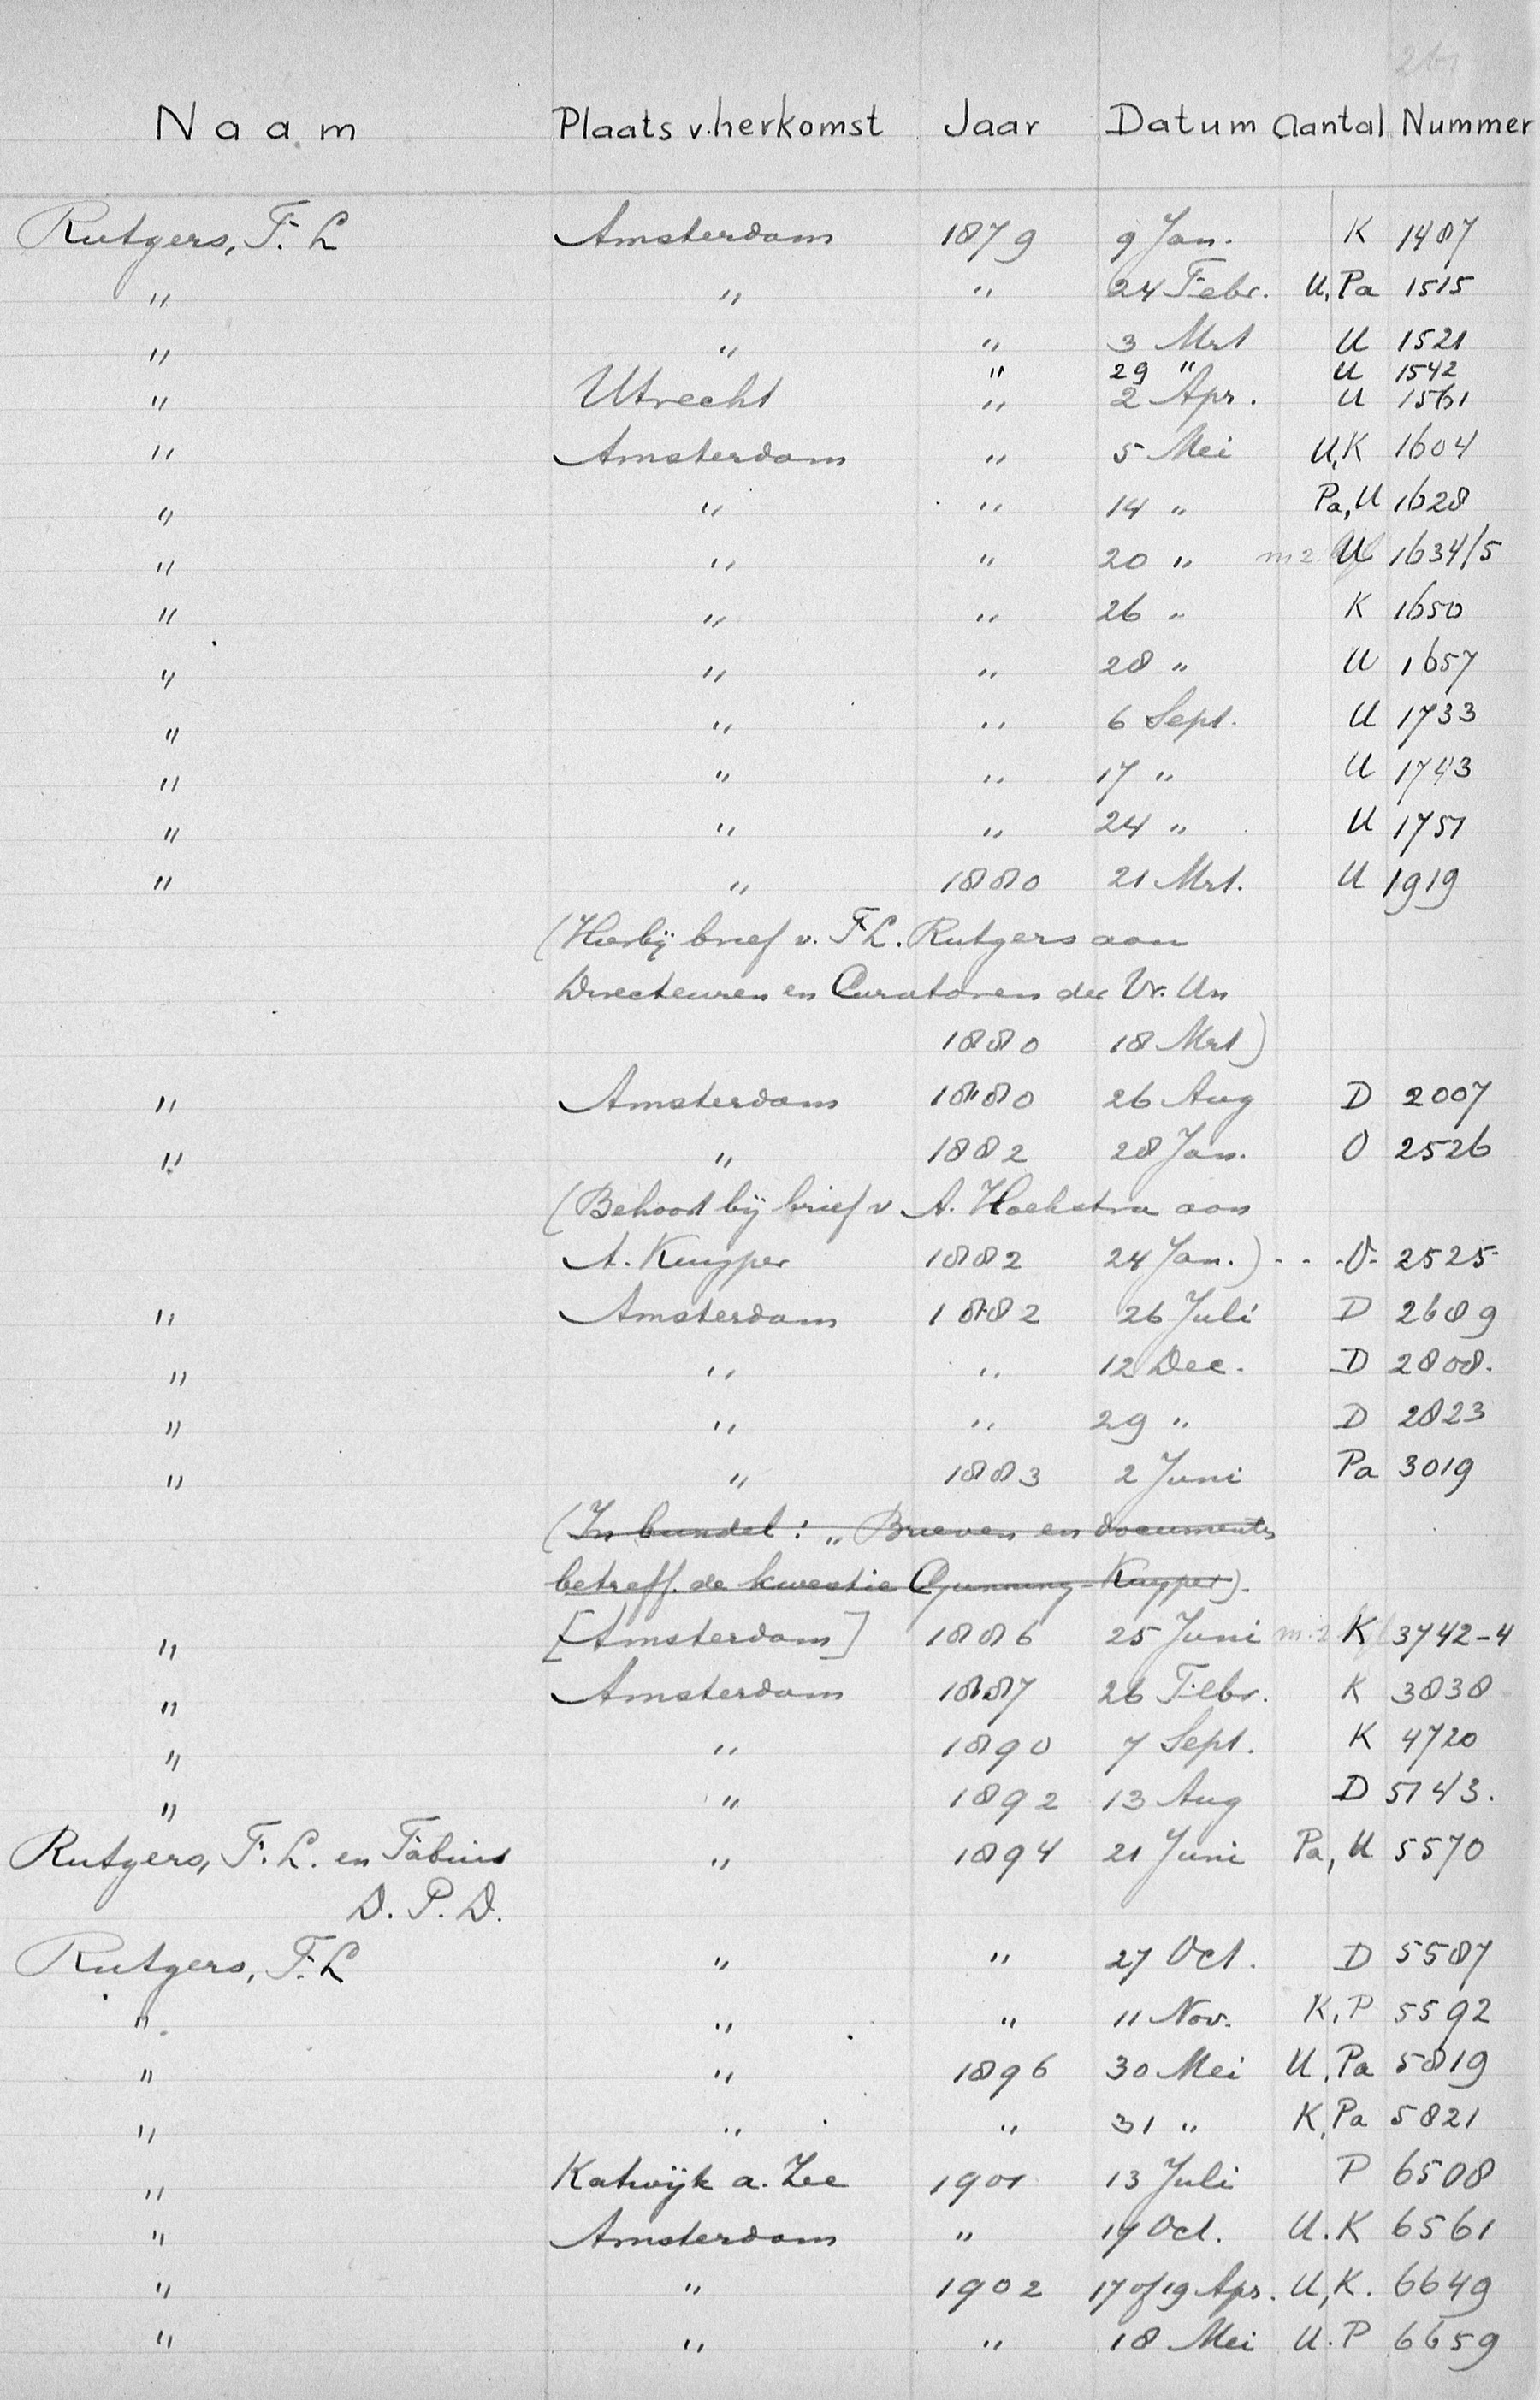 261
Naam Plaats v. herkomst Jaar Datum Aantal Nummer
Rutgers, F. L Amsterdam 1879 9 Jan. K 1407
" " " 24 Febr. U, Pa 1515
" " " 3 Mrt U 1521
" 29 " U 1542
" Utrecht " 2 Apr. U 1561
" Amsterdam " 5 Mei U,K 1604
" " " 14 " Pa, U 1628
" " " 20 " m 2 U 1634/5
" " " 26 " K 1650
" " " 28 " U 1657
" " " 6 Sept. U 1733
" " " 17 " U 1743
" " " 24 " U 1751
" " 1880 21 Mrt. U 1919
(Hierbij brief v. F L. Rutgers aan
Directeuren en Curatoren der Vr. Un
1880 18 Mrt)
" Amsterdam 1880 26 Aug D 2007
" " 1882 28 Jan. O 2526
(Behoort bij brief v A. Hoekstra aan
A. Kuyper 1882 24 Jan.) - - - O - 2525
" Amsterdam 1882 26 Juli D 2689
" " " 12 Dec. D 2808.
" " " 29 " D 2823
" " 1883 2 Juni Pa 3019
(In bundel: „Brieven en documenten
betreff. de kwestie Gunning-Kuyper).
" [Amsterdam] 1886 25 Juni m. 2 K 3742-4
" Amsterdam 1887 26 Febr. K 3838
" " 1890 7 Sept. K 4720
" " 1892 13 Aug D 5143.
Rutgers, F. L. en Fabius " 1894 21 Juni Pa, U 5570
D. P. D.
Rutgers, F. L " " 27 Oct. D 5587
" " " 11 Nov. K, P 5592
" " 1896 30 Mei U, Pa 5819
" " " 31 " K, Pa 5821
" Katwijk a. Zee 1901 13 Juli P 6508
" Amsterdam " 17 Oct. U. K 6561
" " 1902 17 of 19 Apr. U, K. 6649
" " " 18 Mei U. P 6659